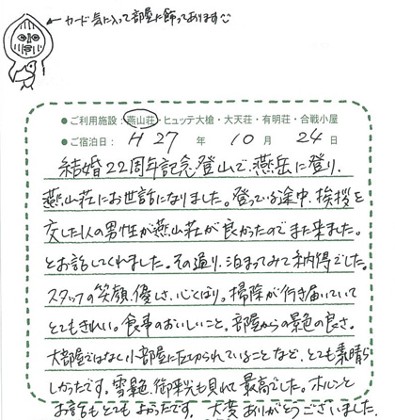 ←カード気に入って部屋に飾ってあります
●ご利用施設：燕山荘・ヒュッテ大槍・大天荘・有明荘・合戦小屋
●ご宿泊日：H 27 年 10 月 24 日
結婚22周年記念登山で、燕岳に登り、
燕山荘にお世話になりました。登っている途中、挨拶を
交した1人の男性が燕山荘が良かったのでまた来ました。
とお話してくれました。その通り、泊まってみて納得でした。
スタッフの笑顔、優しさ、心くばり。掃除が行き届いていて
とてもきれい。食事のおいしいこと。部屋からの景色の良さ。
大部屋ではなく小部屋に区切られていることなど、とても素晴ら
しかったです。雪景色、御来光も見れて最高でした。ホルンと
お話もとても よかったです。大変ありがとうございました。